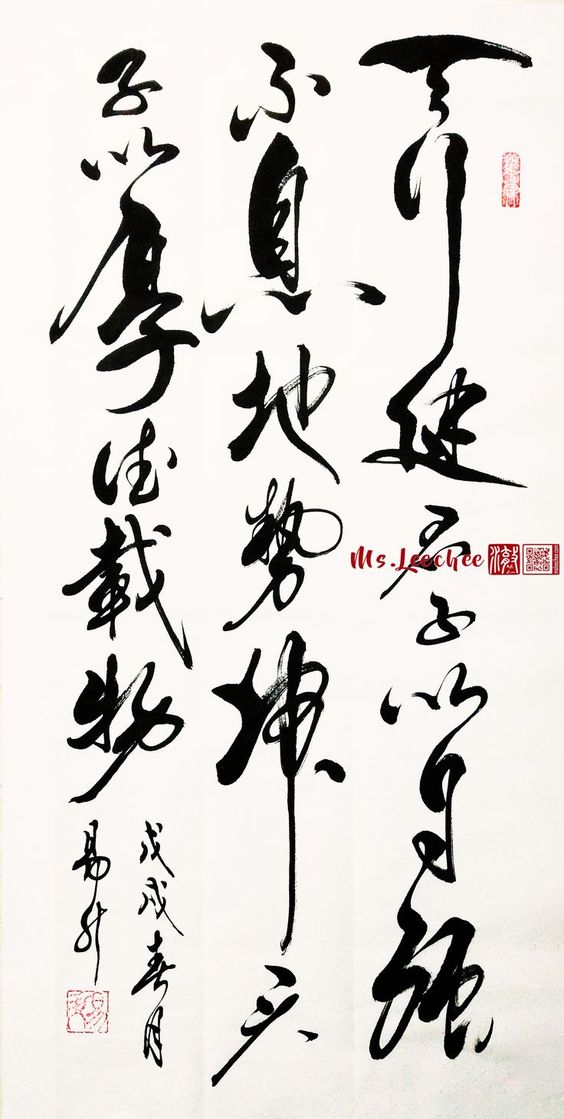 天行健君子以自强
不息地勢坤君
子以厚德載物
戊戌春月
易
Ms.Leechee